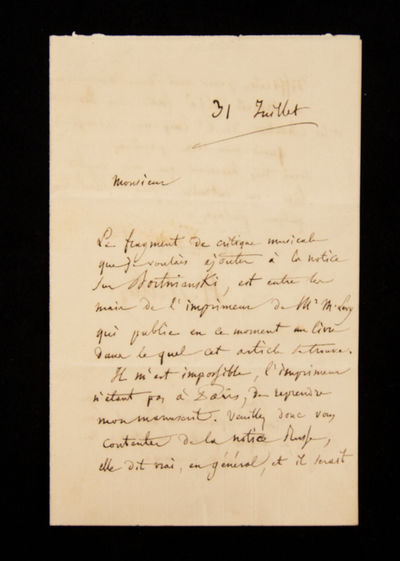 31 Juillet
Monsieur
Le fragment de critique musicale
que je voulais ajouter à la notice
sur Bortnianski, est entre les
mains de l'imprimeur de Mr M. Levy
qui publie en ce moment un livre
dans le quel cet article se trouve.
Il m'est impossible, l'imprimeur
n'étant pas à Paris, de reprendre
mon manuscrit. Veuillez donc vous
contenter de la notice Russe,
elle dit vrai, en général, et il serait